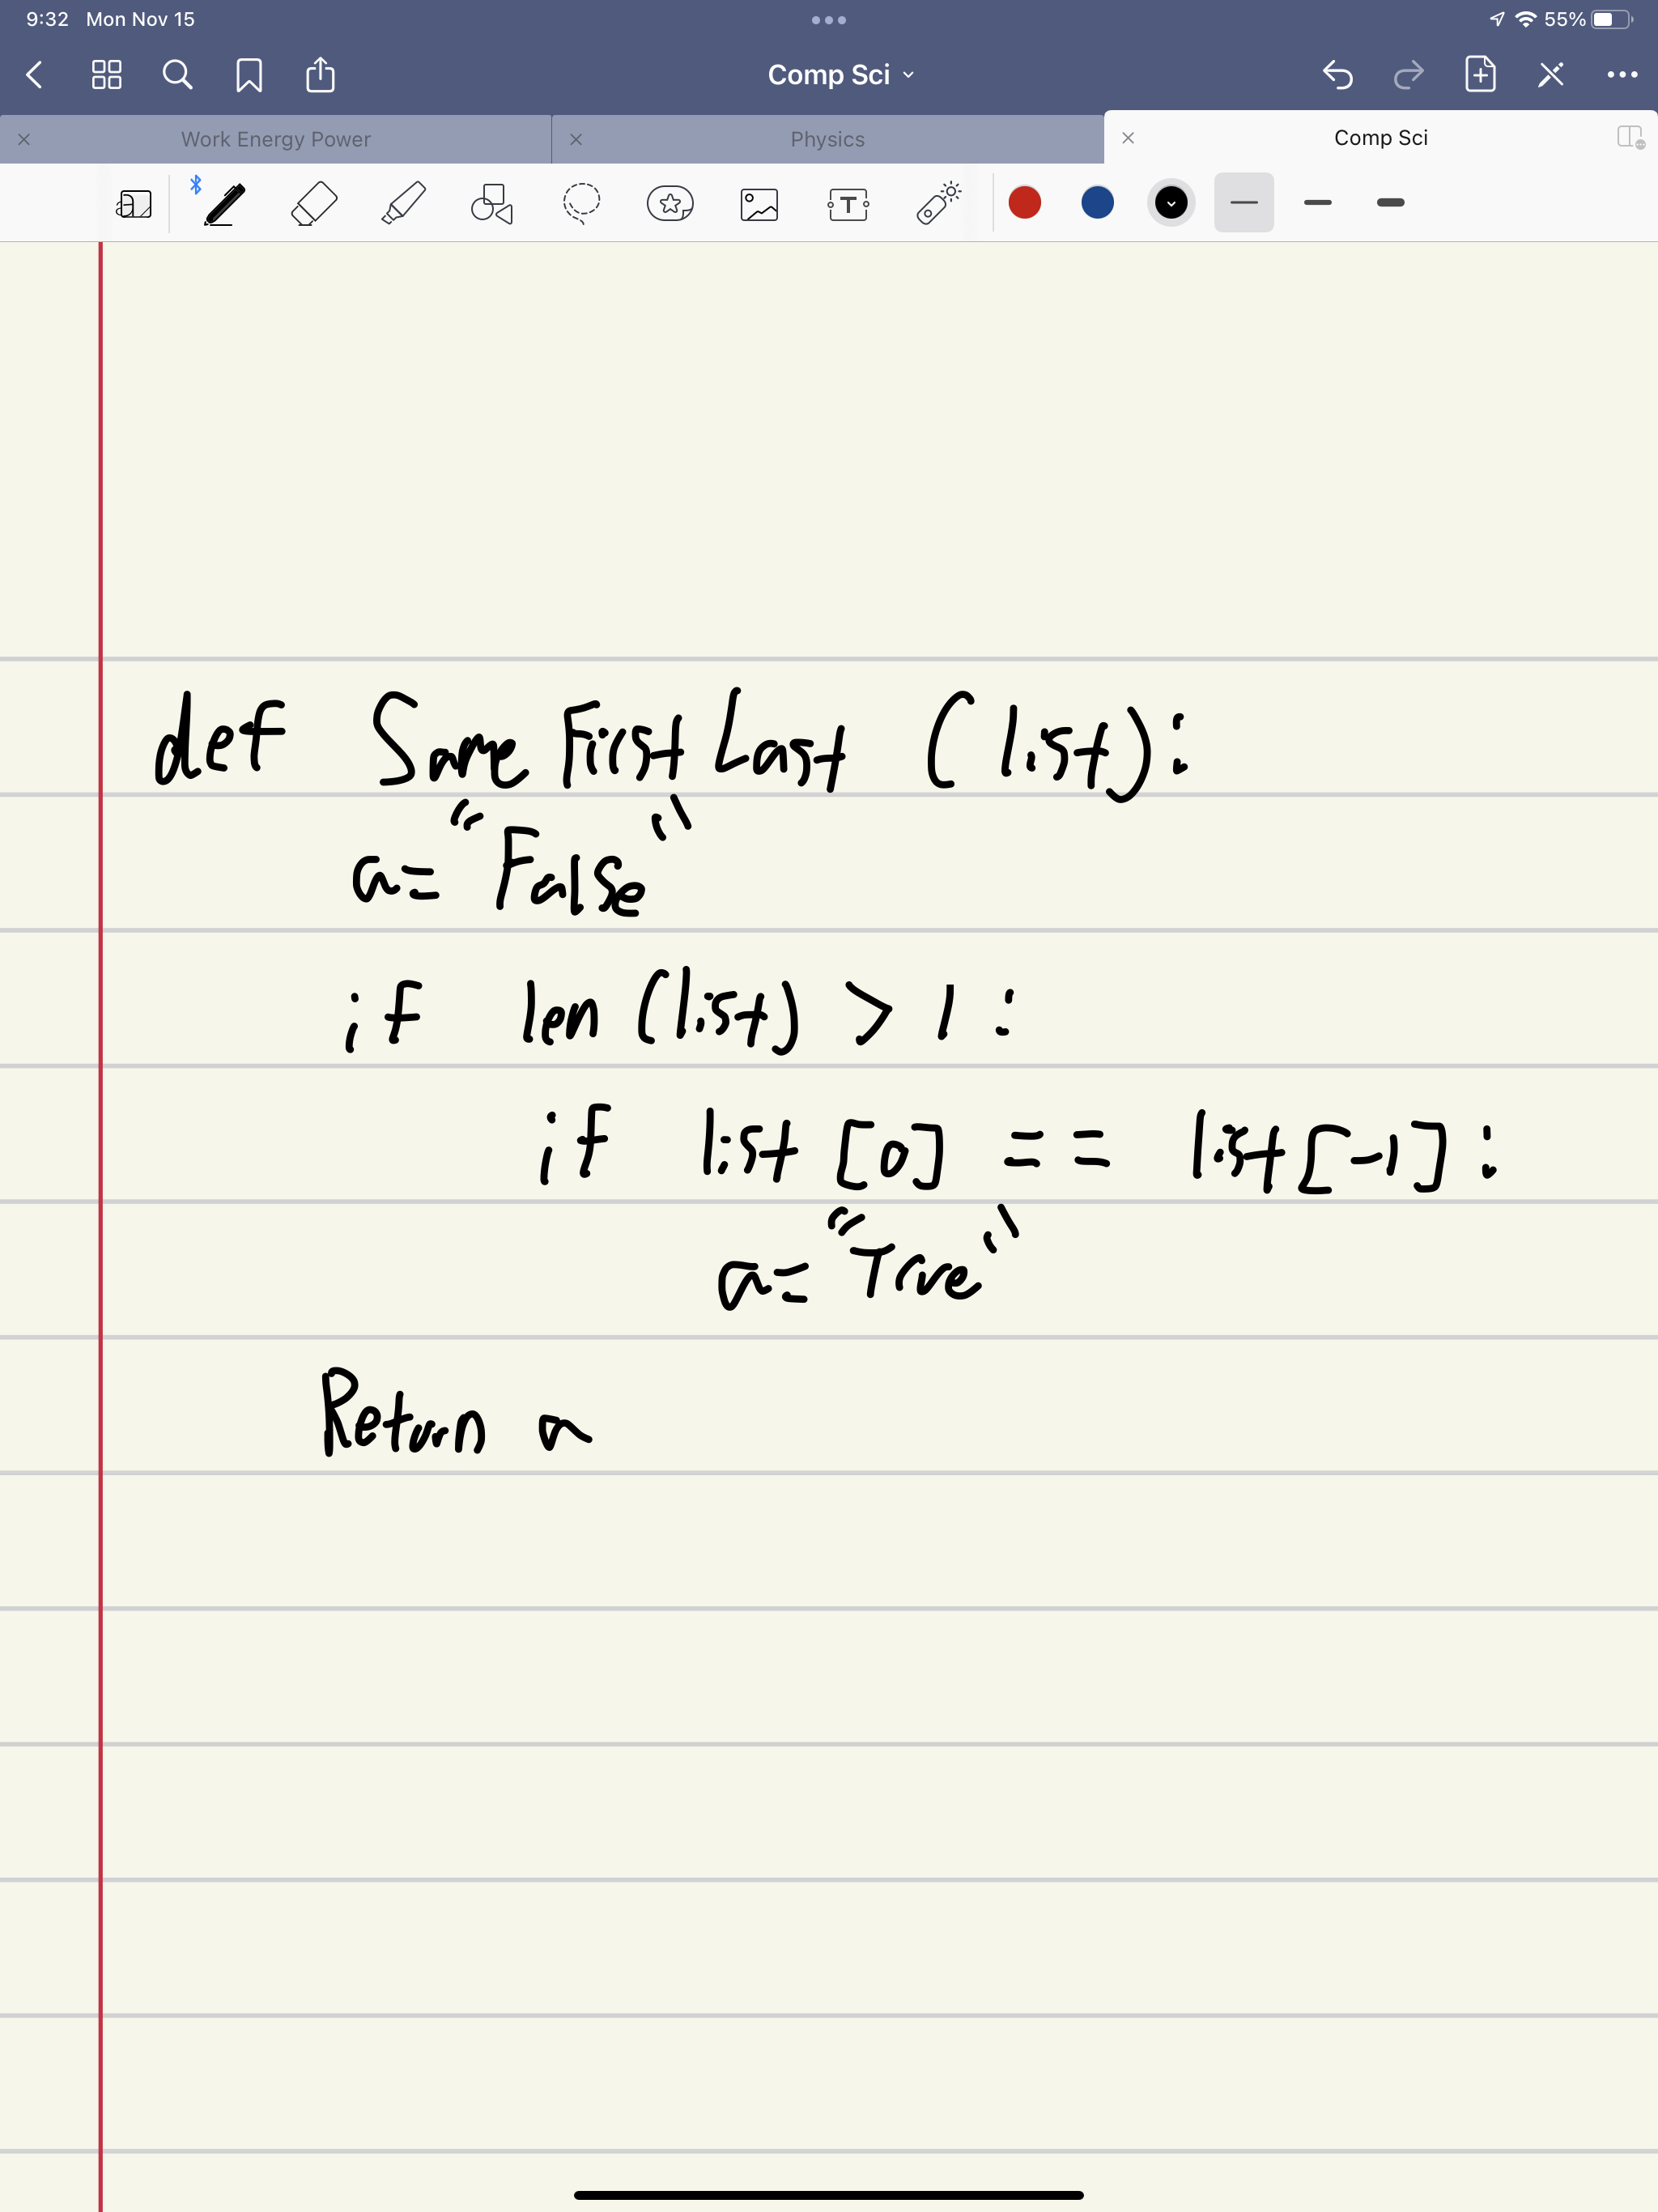 9:32 Mon Nov 15 55%
Comp Sci
Work Energy Power Physics Comp Sci
T
def SameFirstLast (list):
a= "False"
if len (list) > 1 :
if list [0] == list[-1] :
a= "True"
Return a